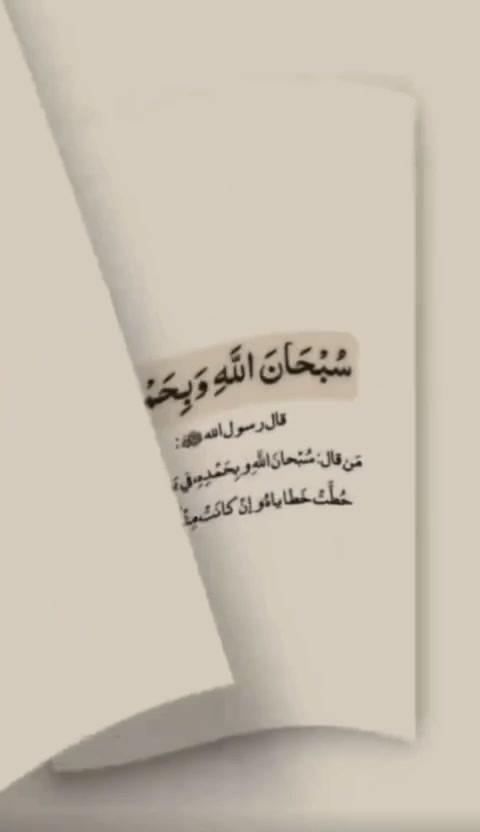 سُبْحَانَ اللَّهِ وَبِحَمْ
قال رسول الله ﷺ :
مَن قال: سُبْحانَ اللَّهِ وبِحَمْدِهِ، في
حُطَّتْ خَطاياهُ وإنْ كانَتْ